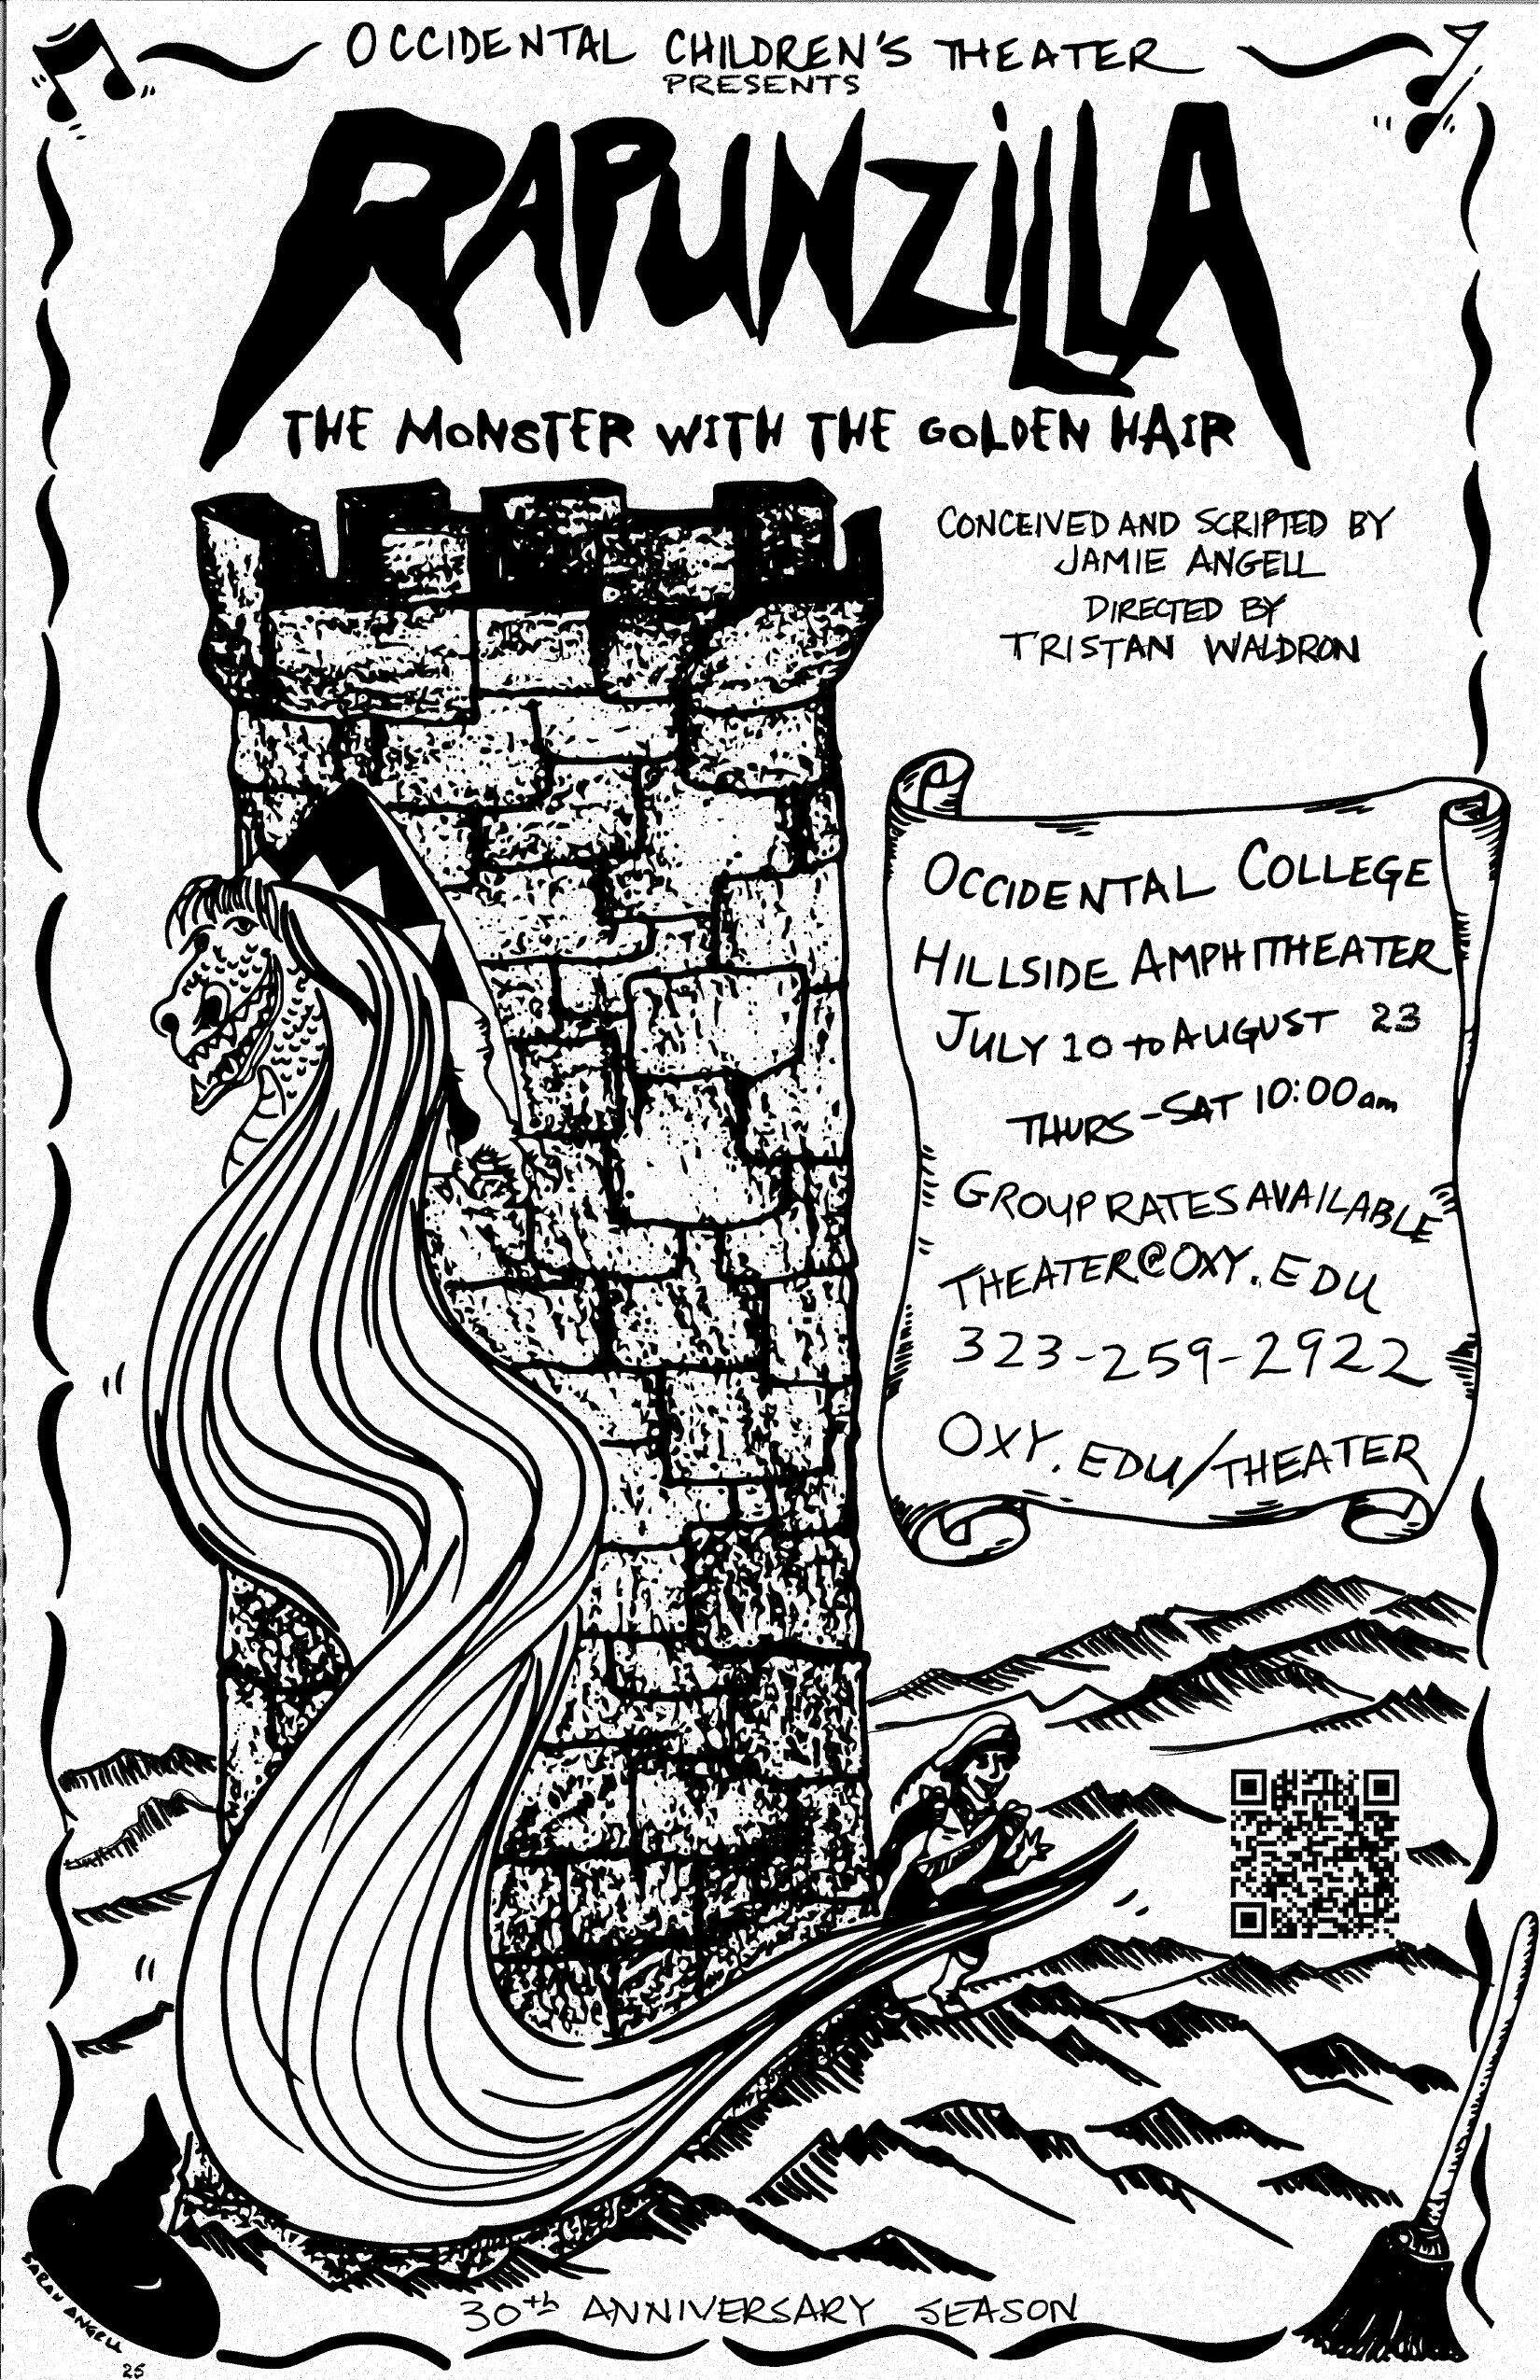 OCCIDENTAL CHILDREN'S THEATER
PRESENTS
RAPUNZILLA
THE MONSTER WITH THE GOLDEN HAIR
CONCEIVED AND SCRIPTED BY
JAMIE ANGELL
DIRECTED BY
TRISTAN WALDRON
OCCIDENTAL COLLEGE
HILLSIDE AMPHITHEATER
JULY 10 to AUGUST 23
THURS-SAT 10:00am
GROUP RATES AVAILABLE
THEATER@OXY.EDU
323-259-2922
OXY.EDU/THEATER
30th ANNIVERSARY SEASON
SARAH ANGELL
25